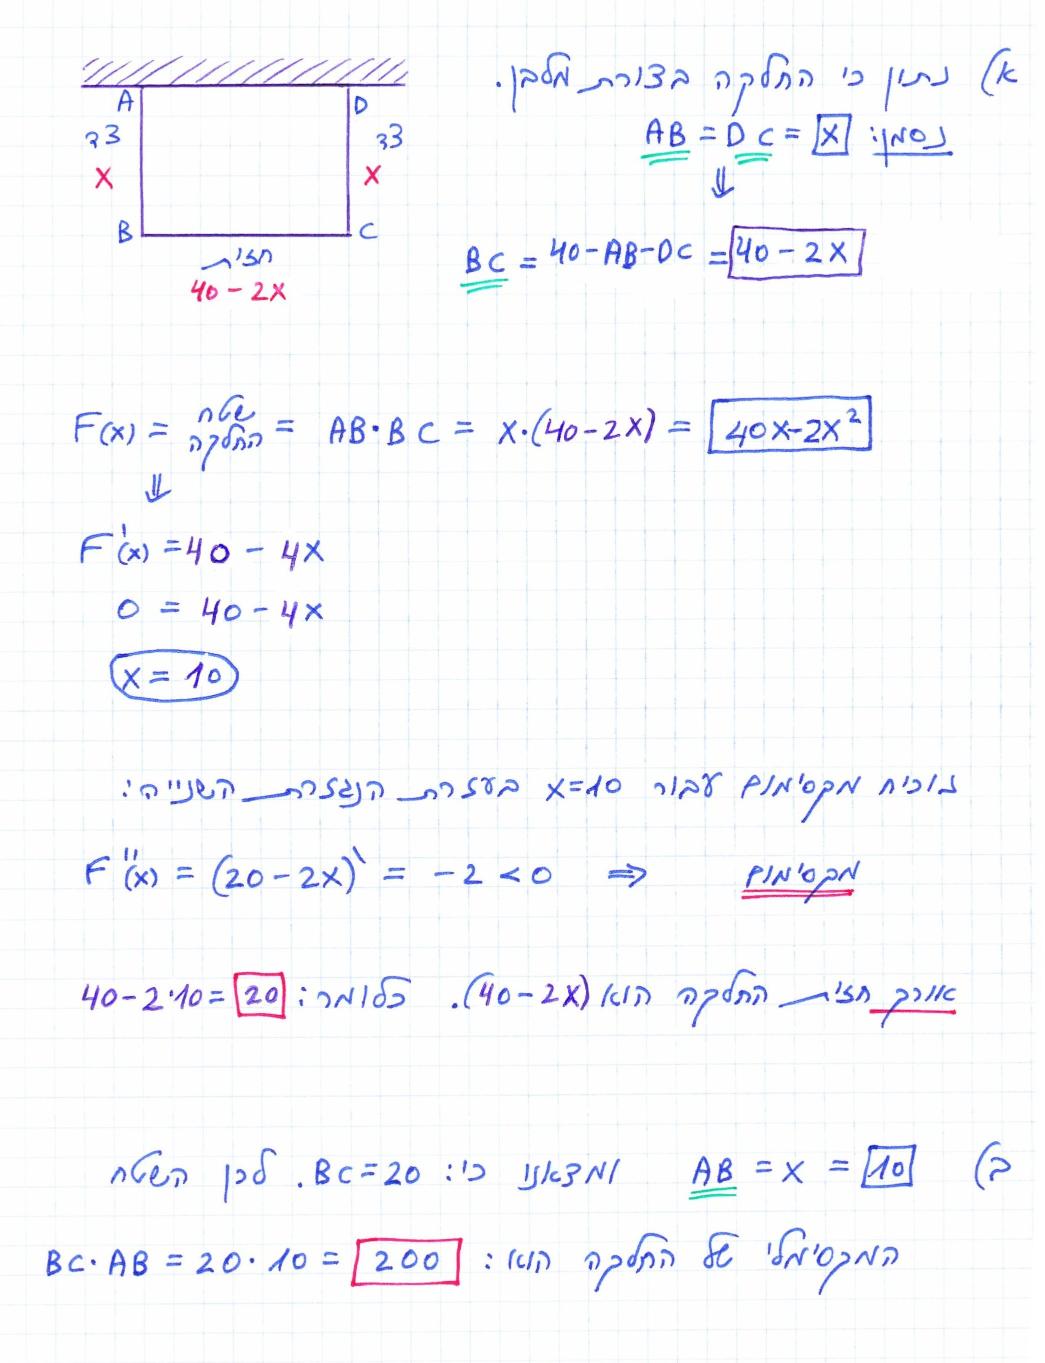 א) נתון כי החלקה בצורת מלבן.
נסמן: AB = DC = x
⇓
BC = 40-AB-DC = 40-2x
A D
צד צד
x x
B C
חזית
40-2x
F(x) = שטח החלקה = AB·BC = x·(40-2x) = 40x-2x²
⇓
F'(x) = 40-4x
0 = 40-4x
x = 10
נוכיח מקסימום עבור x=10 בעזרת הנגזרת השנייה:
F''(x) = (20-2x)' = -2 < 0 ⇒ מקסימום
אורך חזית החלקה הוא (40-2x). כלומר: 40-2·10=20
ב) AB = x = 10 ומצאנו כי: BC=20. לכן השטח
המקסימלי של החלקה הוא: BC·AB = 20·10 = 200